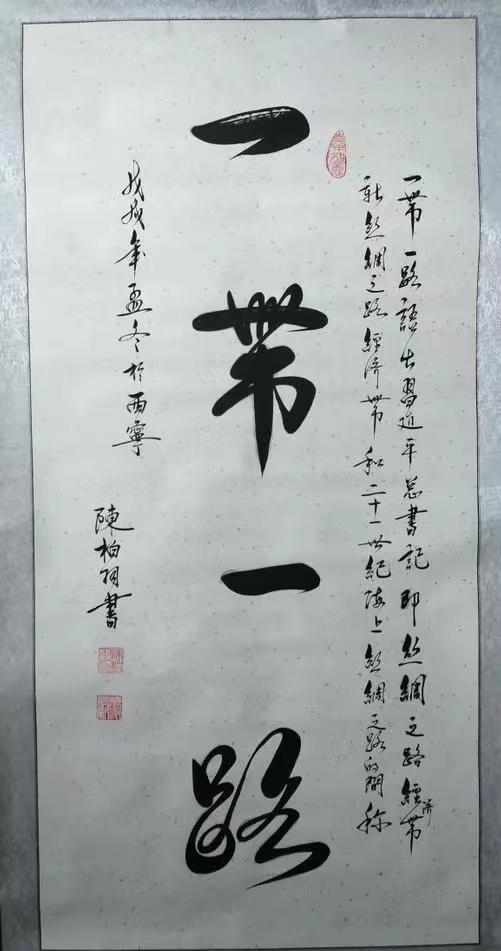 一帶一路語出習近平总書記即丝綢之路經济帶
新丝綢之路經济帶和二十一世紀海上丝綢之路的簡称
一帶一路
戊戌年孟冬於西寧
陳柏書